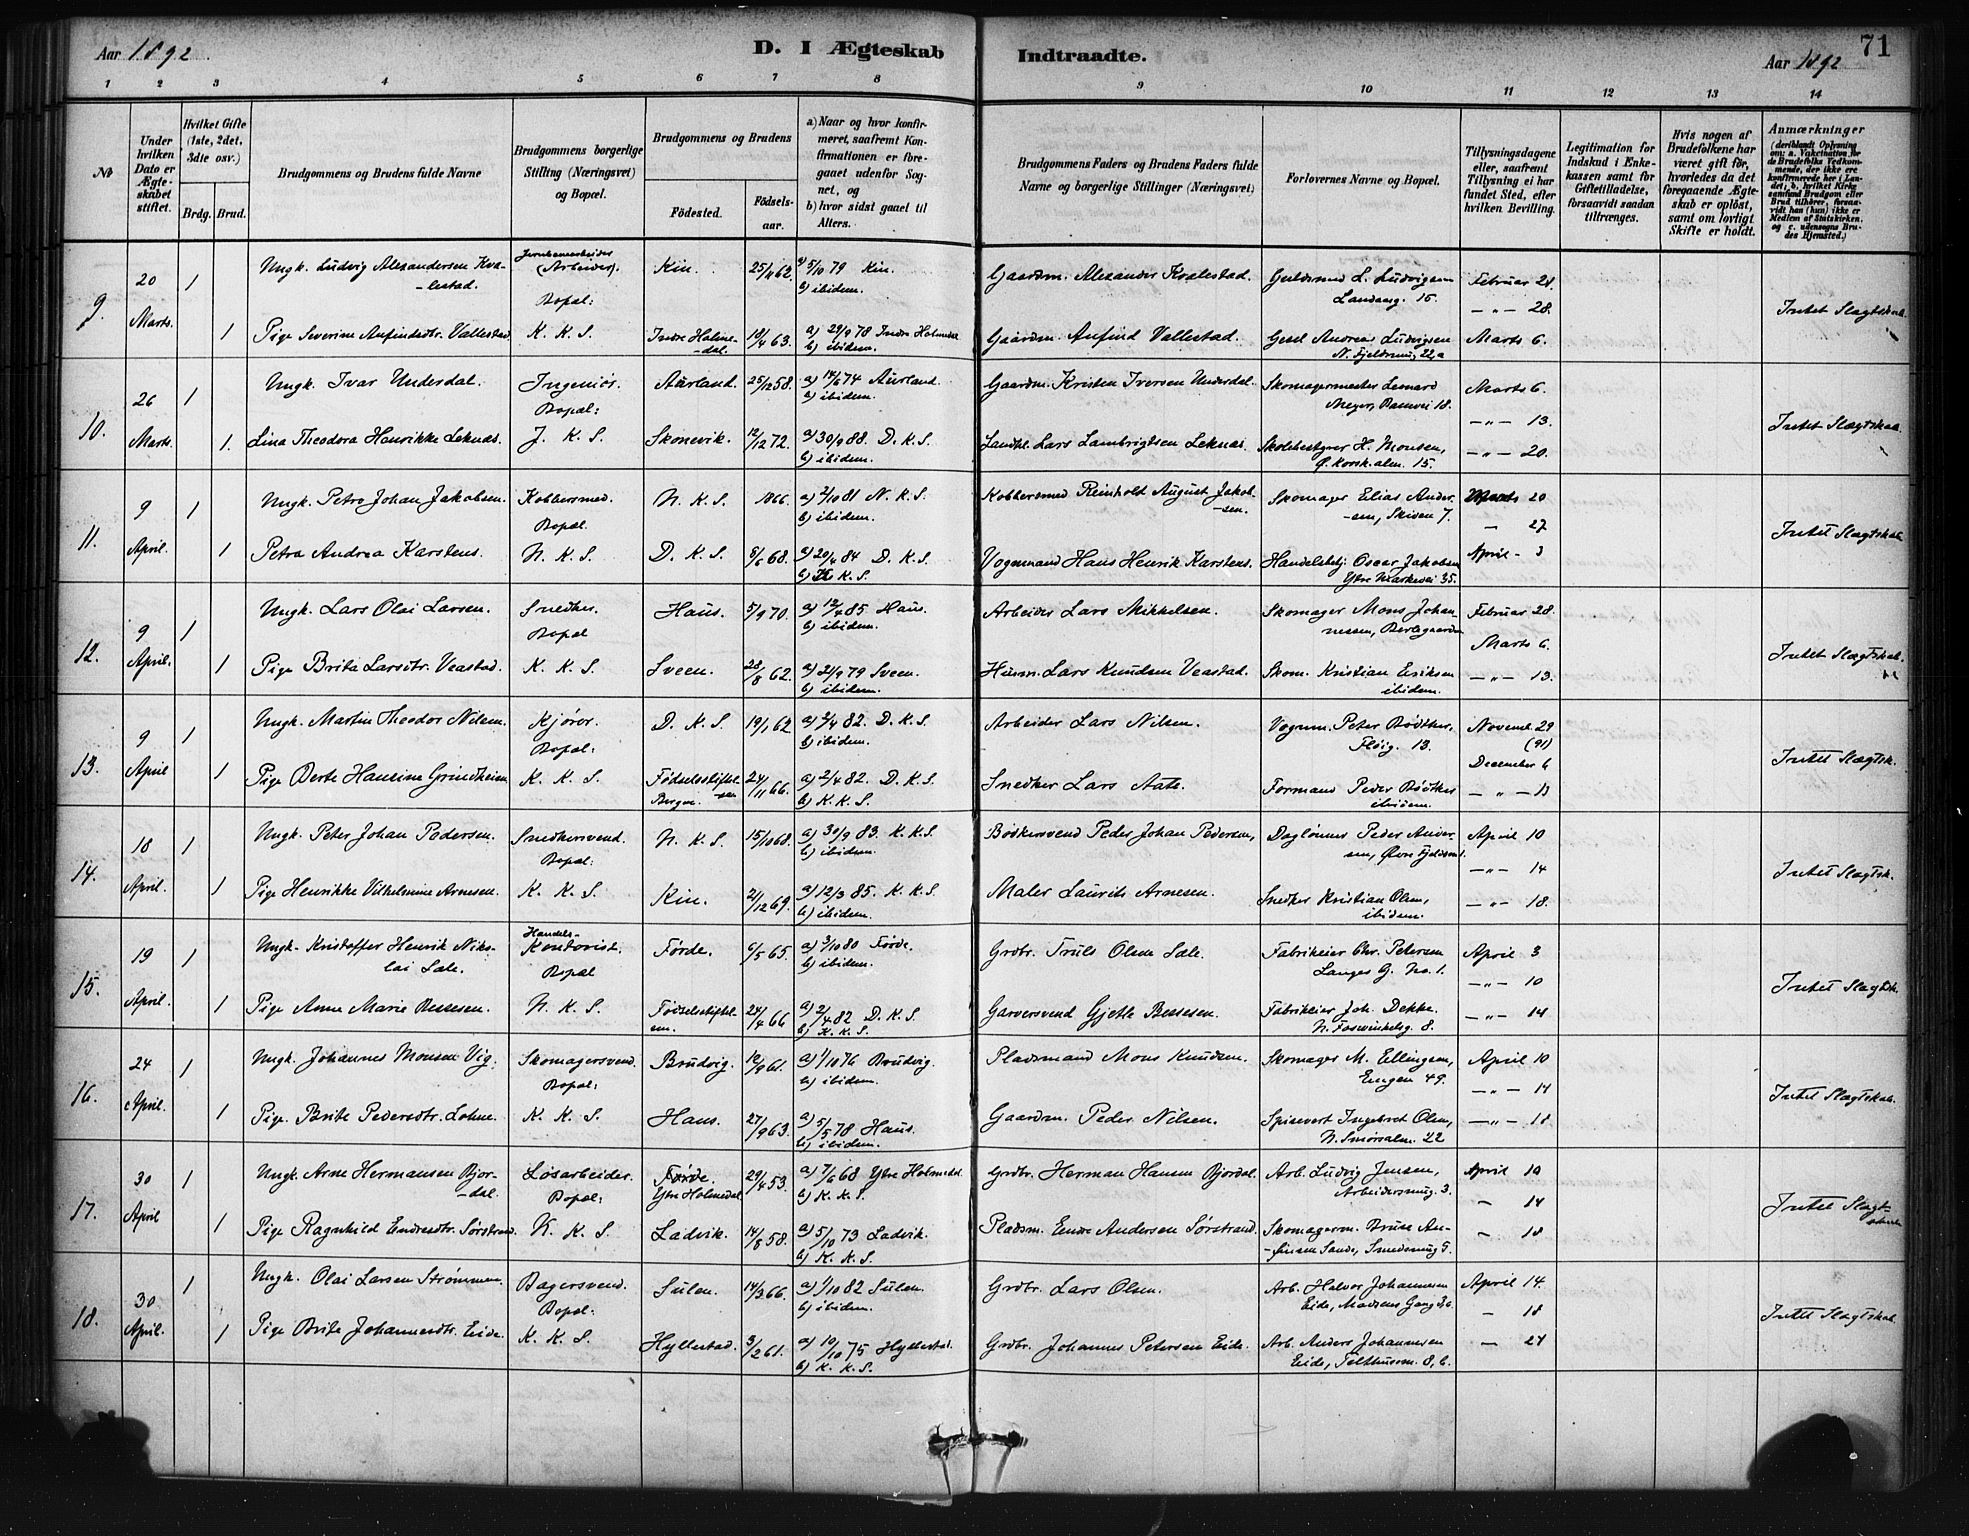 Aar 1892.
D. I Ægteskab Indtraadte.
Aar 1892
71
1 2 3 4 5 6 7 8 9 10 11 12 13 14
№
Under hvilken Dato er Ægteskabet stiftet.
Hvilket Gifte (1ste, 2det, 3die osv.)
Brdg. Brud.
Brudgommens og Brudens fulde Navne
Brudgommens borgerlige Stilling (Næringsvei) og Bopæl.
Brudgommens og Brudens
Födested. Födselsaar.
a) Naar og hvor konfirmeret, saafremt Konfirmationen er foregaaet udenfor Sognet, og
b) hvor sidst gaaet til Alters.
Brudgommens Faders og Brudens Faders fulde Navne og borgerlige Stillinger (Næringsvei)
Forlovernes Navne og Bopæl.
Tillysningsdagene eller, saafremt Tillysning ei har fundet Sted, efter hvilken Bevilling.
Legitimation for Indskud i Enkekassen samt for Giftetilladelse, forsaavidt saadan tiltrænges.
Hvis nogen af Brudefolkene har været gift för, hvorledes da det foregaaende Ægteskab er oplöst, samt om lovligt Skifte er holdt.
Anmærkninger (deriblandt Oplysning om: a. Vaccination for de Brudefolks Vedkommende, der ikke ere konfirmerede her i Landet; b. hvilket Kirkesamfund Brudgom eller Brud tilhörer, forsaavidt han (hun) ikke er Medlem af Statskirken, og c. udensogns Brudes Hjemsted.)
9. 20 Marts. 1 Ungk. Ludvig Alexandersen Kvalestad. Jernbanearbeider (Arbeider). Bopæl: Kin. 25/11 62. a) 5/10 79 Kin. b) ibidem. Gaardm. Alexander Kvalestad. Guldsmed L. Ludvigsen Landaasg. 16. Februar 21. — " — 28. Intet Slagtskab.
1 Pige Severine Anfindsdtr. Vallestad. K. K. S. Indre Holmedal. 18/4 63. a) 29/9 78 Indre Holmedal b) ibidem. Gaardm. Anfind Vallestad. Gesel Andreas Ludvigsen N. Fjeldsmug 22,a Marts 6.
10. 26 Marts. 1 Ungk. Ivar Underdal. Ingeniör. Bopæl: Aurland. 25/12 58. a) 14/6 74 Aurland. b) ibidem. Gaardm. Kristen Iversen Underdal. Skomagermester Leonard Meyer, 18. Marts 6. — " — 13. Intet Slagtskab.
1. Lina Theodora Henrikke Leknes. J. K. S. Skonevik. 12/12 72. a) 30/9 88. D. K. S. b) ibidem. Landhl. Lars Lambrigtsen Leknes Skolebestyrer H. Monsen, Ø. Korsk.alm. 15. — " — 20.
11. 9 April. 1 Ungk. Petro Johan Jakobsen. Kobbersmed. Bopæl. N. K. S. 1866. a) 2/10 81 N. K. S. b) ibidem. Kobbersmed Reinholdt August Jakobsen. Skomager Elias Andersen, Skiven 7. Marts 20 — 27 Intet Slagtskab
1 Petra Andrea Karstens. N. K. S. D. K. S. 5/6 68. a) 20/4 84 D. K. S. b) K. S. Vognmand Hans Henrik Karstens. Handelsbetj. Oscar Jakobsen Ytre Markevei 35. April - 3
12. 9 April. 1 Ungk. Lars Olai Larsen. Snedker. Bopæl Haus. 5/9 70. a) 12/4 85 Haus. b) ibidem. Arbeider Lars Mikkelsen. Skomager Mons Johannessen, Februar 28. Marts 6. Intet Slagtskab.
1 Pige Brita Larsdtr. Veastad. K. K. S. Sveen. 28/8 62. a) 21/9 79 Sveen. b) ibidem. Husm. Lars Knudsen Veastad. Skom. Kristian Eriksen ibidem. — " — 13.
13. 9 April 1 Ungk. Martin Theodor Nilsen. Kjörer. Bopæl: D. K. S. 19/1 62. a) 2/4 82. D. K. S. b) ibidem. Arbeider Lars Nilsen. Vognm. Peter Bödtker, Flöig. 13. Novemb. 29 (91) December 6 Intet Slagtsk.
1 Pige Berte Hansine Grindheim K. K. S. Födselsstiftelsen Bergen. 24/11 66. a) 2/4 82. D. K. S. b) K. K. S. Snedker Lars Aate. Formand Peder Bödtker ibidem. — " — 13
14. 18 April. 1 Ungk. Peter Johan Pedersen. Snedkersvend. Bopæl: N. K. S. 15/10 68. a) 30/9 83. K. K. S. b) ibidem. Bödkersvend Peder Johan Pedersen, Daglönner Peder Andersen, Øvre April 10 — " — 14 Intet Slagtsk.
1 Pige Henrikke Vilhelmine Arnesen. K. K. S. Kin. 21/12 69. a) 12/3 85. K. K. S. b) ibidem. Maler Laurits Arnesen. Snedker Kristian Olsen, ibidem. — " — 18.
15. 19 April. 1 Ungk. Kristoffer Henrik Nikolai Sæle. Handels-Kontorist. Bopæl Förde. 6/5 65. a) 3/10 80 Förde. b) ibidem. Grdbr. Truls Olsen Sæle. Fabrikeier Chr. Petersen Langes G. No. 1. April 3 — " — 10 Intet Slagtsk.
1 Pige Anne Marie Bessesen. N. K. S. Födselsstiftelsen. 24/4 66 a) 2/4 82 D. K. S. b) K. K. S. Garversvend Gjetle Bessesen. Fabrikeier Joh. Dekke. N. Foswinkelsg. 8. — " — 14
16. 24 April. 1 Ungk. Johannes Monsen Vig. Skomagersvend. Bopæl: Brudvig. 12/9 61. a) 1/10 76 Brudvig. b) ibidem. Pladsmand Mons Knudsen. Skomager M. Ellingsen, Engen 49. April 10 — " — 14 Intet Slagtskab.
1 Pige Brite Pedersdtr. Lohne. K. K. S. Haus. 27/9 63. a) 5/5 78 Haus. b) ibidem. Gaardm. Peder Nilsen. Spisevert Ingebret Olsen, N. Smörsalm. 22 — " — 18
17. 30 April 1 Ungk. Arne Hermansen Bjordal. Lösarbeider. Bopæl: Förde. Ytre Holmedal 29/4 53. a) 7/6 68 Ytre Holmedal. b) K. K. S. Grdbr. Herman Hansen Bjordal. Arb. Ludvig Jensen, Arbeidersmug. 3. April 10 — 14 Intet Slagtskab
1 Pige Ragnhild Endresdtr. Sörstrand. N. K. S. Ladvik. 14/8 58. a) 5/10 73 Ladvik. b) K. K. S. Pladsm. Endre Andersen Sörstrand. Skomagerm. Sande, Smedesmug 5. — 18
18. 30 April. 1 Ungk. Olai Larsen Strömmen. Bagersvend. Bopæl: Sulen. 14/3 66. a) 1/10 82 Sulen. b) ibidem. Grdbr. Lars Olsen. Arb. Halvor Johannesen Eide, Madsens Gang 3c. April 14. — 18 Intet Slagtskab.
1 Pige Brite Johannesdtr. Eide. K. K. S. Hyllestad. 3/2 61. a) 10/10 75 Hyllestad. b) K. K. S. Grdbr. Johannes Petersen Eide. Arb. Anders Johannesen Eide, 8, b. — 24